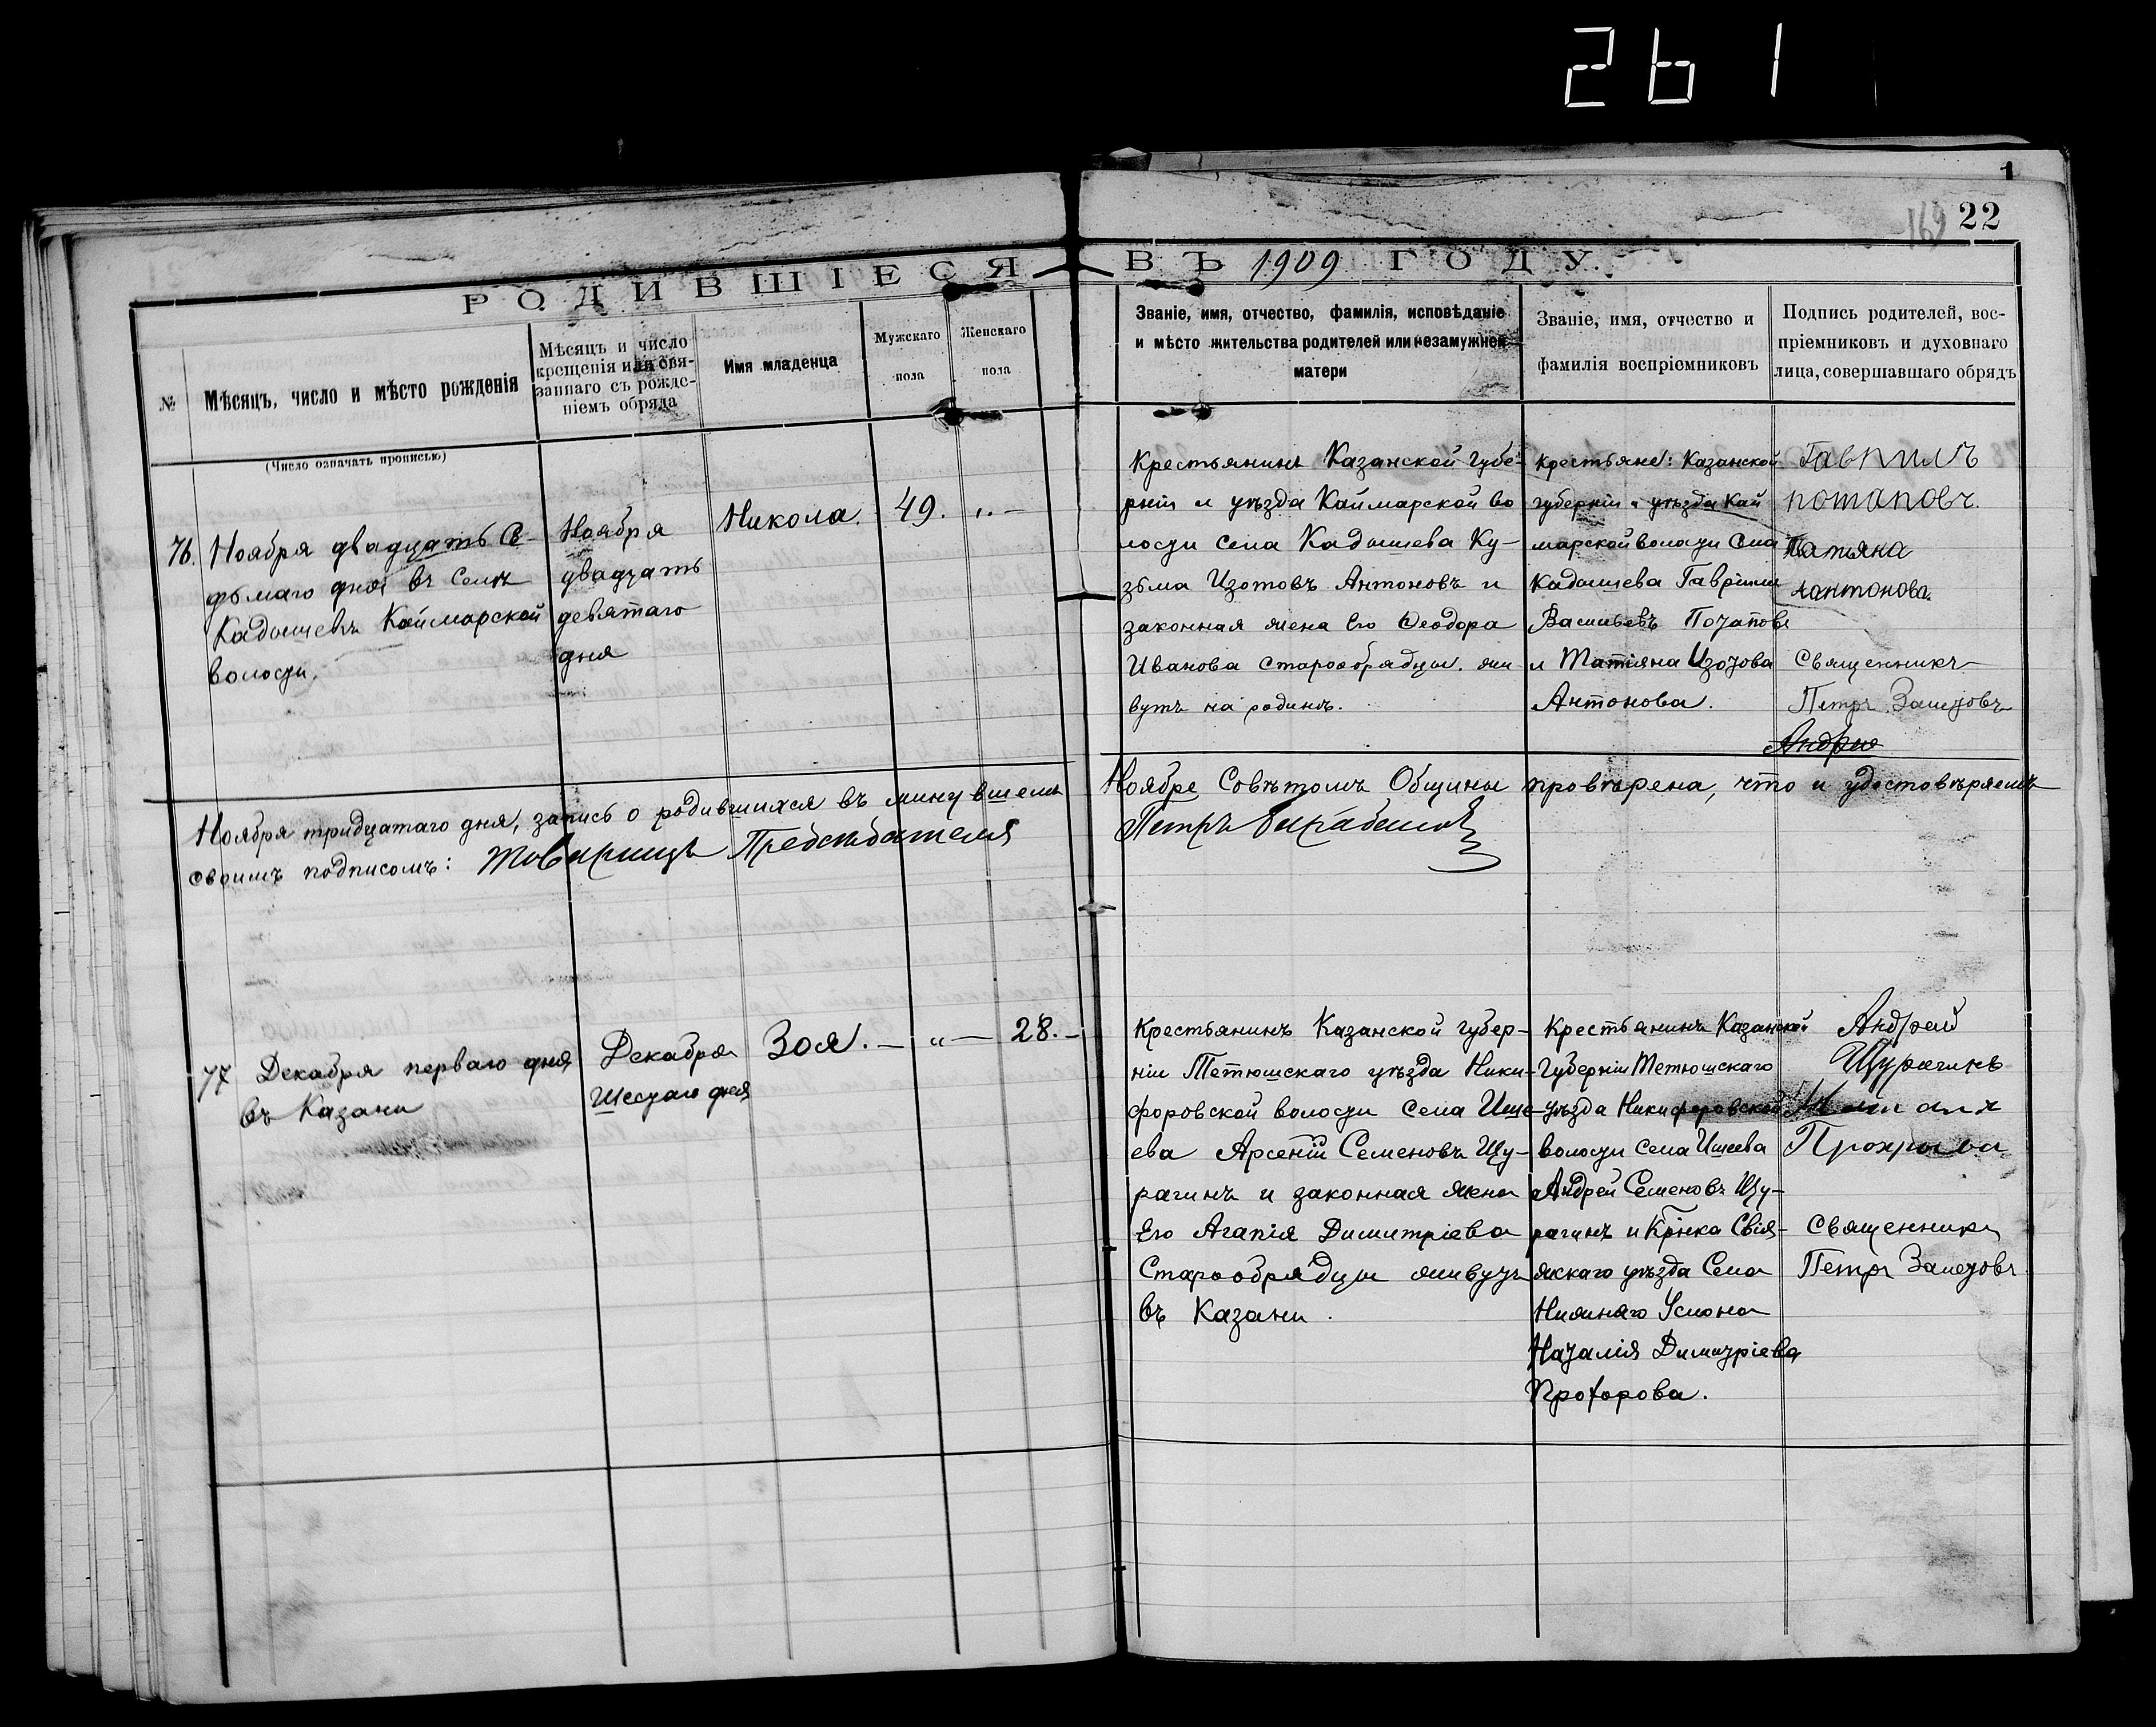 261
1
169 22
РОДИВШІЕСЯ ВЪ 1909 ГОДУ.
№
Мѣсяцъ, число и мѣсто рожденія
(Число означать прописью)
Мѣсяцъ и число
крещенія или свя-
заннаго съ рожде-
ніемъ обряда
Имя младенца
Мужскаго
пола
Женскаго
пола
Званіе, имя, отчество, фамилія, исповѣданіе
и мѣсто жительства родителей или незамужней
матери
Званіе, имя, отчество и
фамилія воспріемниковъ
Подпись родителей, вос-
пріемниковъ и духовнаго
лица, совершавшаго обрядъ
76.
Ноября двадцать се-
дьмаго дня въ селѣ
Кадышевѣ Каймарской
волости.
Ноября
двадцать
девятаго
дня
Никола.
49.
„ —
Крестьянинъ Казанской губе-
рніи и уѣзда Каймарской во
лости села Кадышева Ку-
зьма Изотовъ Антоновъ и
законная жена Его Ѳеодора
Иванова старообрядцы. жи
вутъ на родинѣ.
Крестьяне: Казанской
губерніи и уѣзда Кай
марской волости села
Кадышева Гавріилъ
Васильевъ Потаповъ
и Татіяна Изотова
Антонова.
Гавриилъ
потаповъ.
Татьяна
Антонова.
Священникъ
Петръ Залетовъ
Андрея
Ноября тридцатаго дня, запись о родившихся въ минувшемъ Ноябре Совѣтомъ Общины провѣрена, что и удостовѣряемъ
своимъ подписомъ: Товарищъ Председателя Петръ
77
Декабря перваго дня
въ Казани
Декабря
Шестаго дня
Зоя. —
„ —
28. —
Крестьянинъ Казанской губер-
ніи Тетюшскаго уѣзда Ники-
форовской волости села Ише-
ева Арсеній Семеновъ Щу-
рагинъ и законная жена
Его Агапія Димитріева
Старообрядцы живутъ
въ Казани.
Крестьянинъ Казанской
Губерніи Тетюшскаго
уѣзда Никифоровской
волости села Ишеева
Андрей Семеновъ Щу-
рагинъ и Кр͞нка Свія-
жскаго уѣзда Села
Нижняго Услона
Наталія Димитріева
Прохорова.
Андрей
Щурагинъ
Священникъ
Петръ Залетовъ